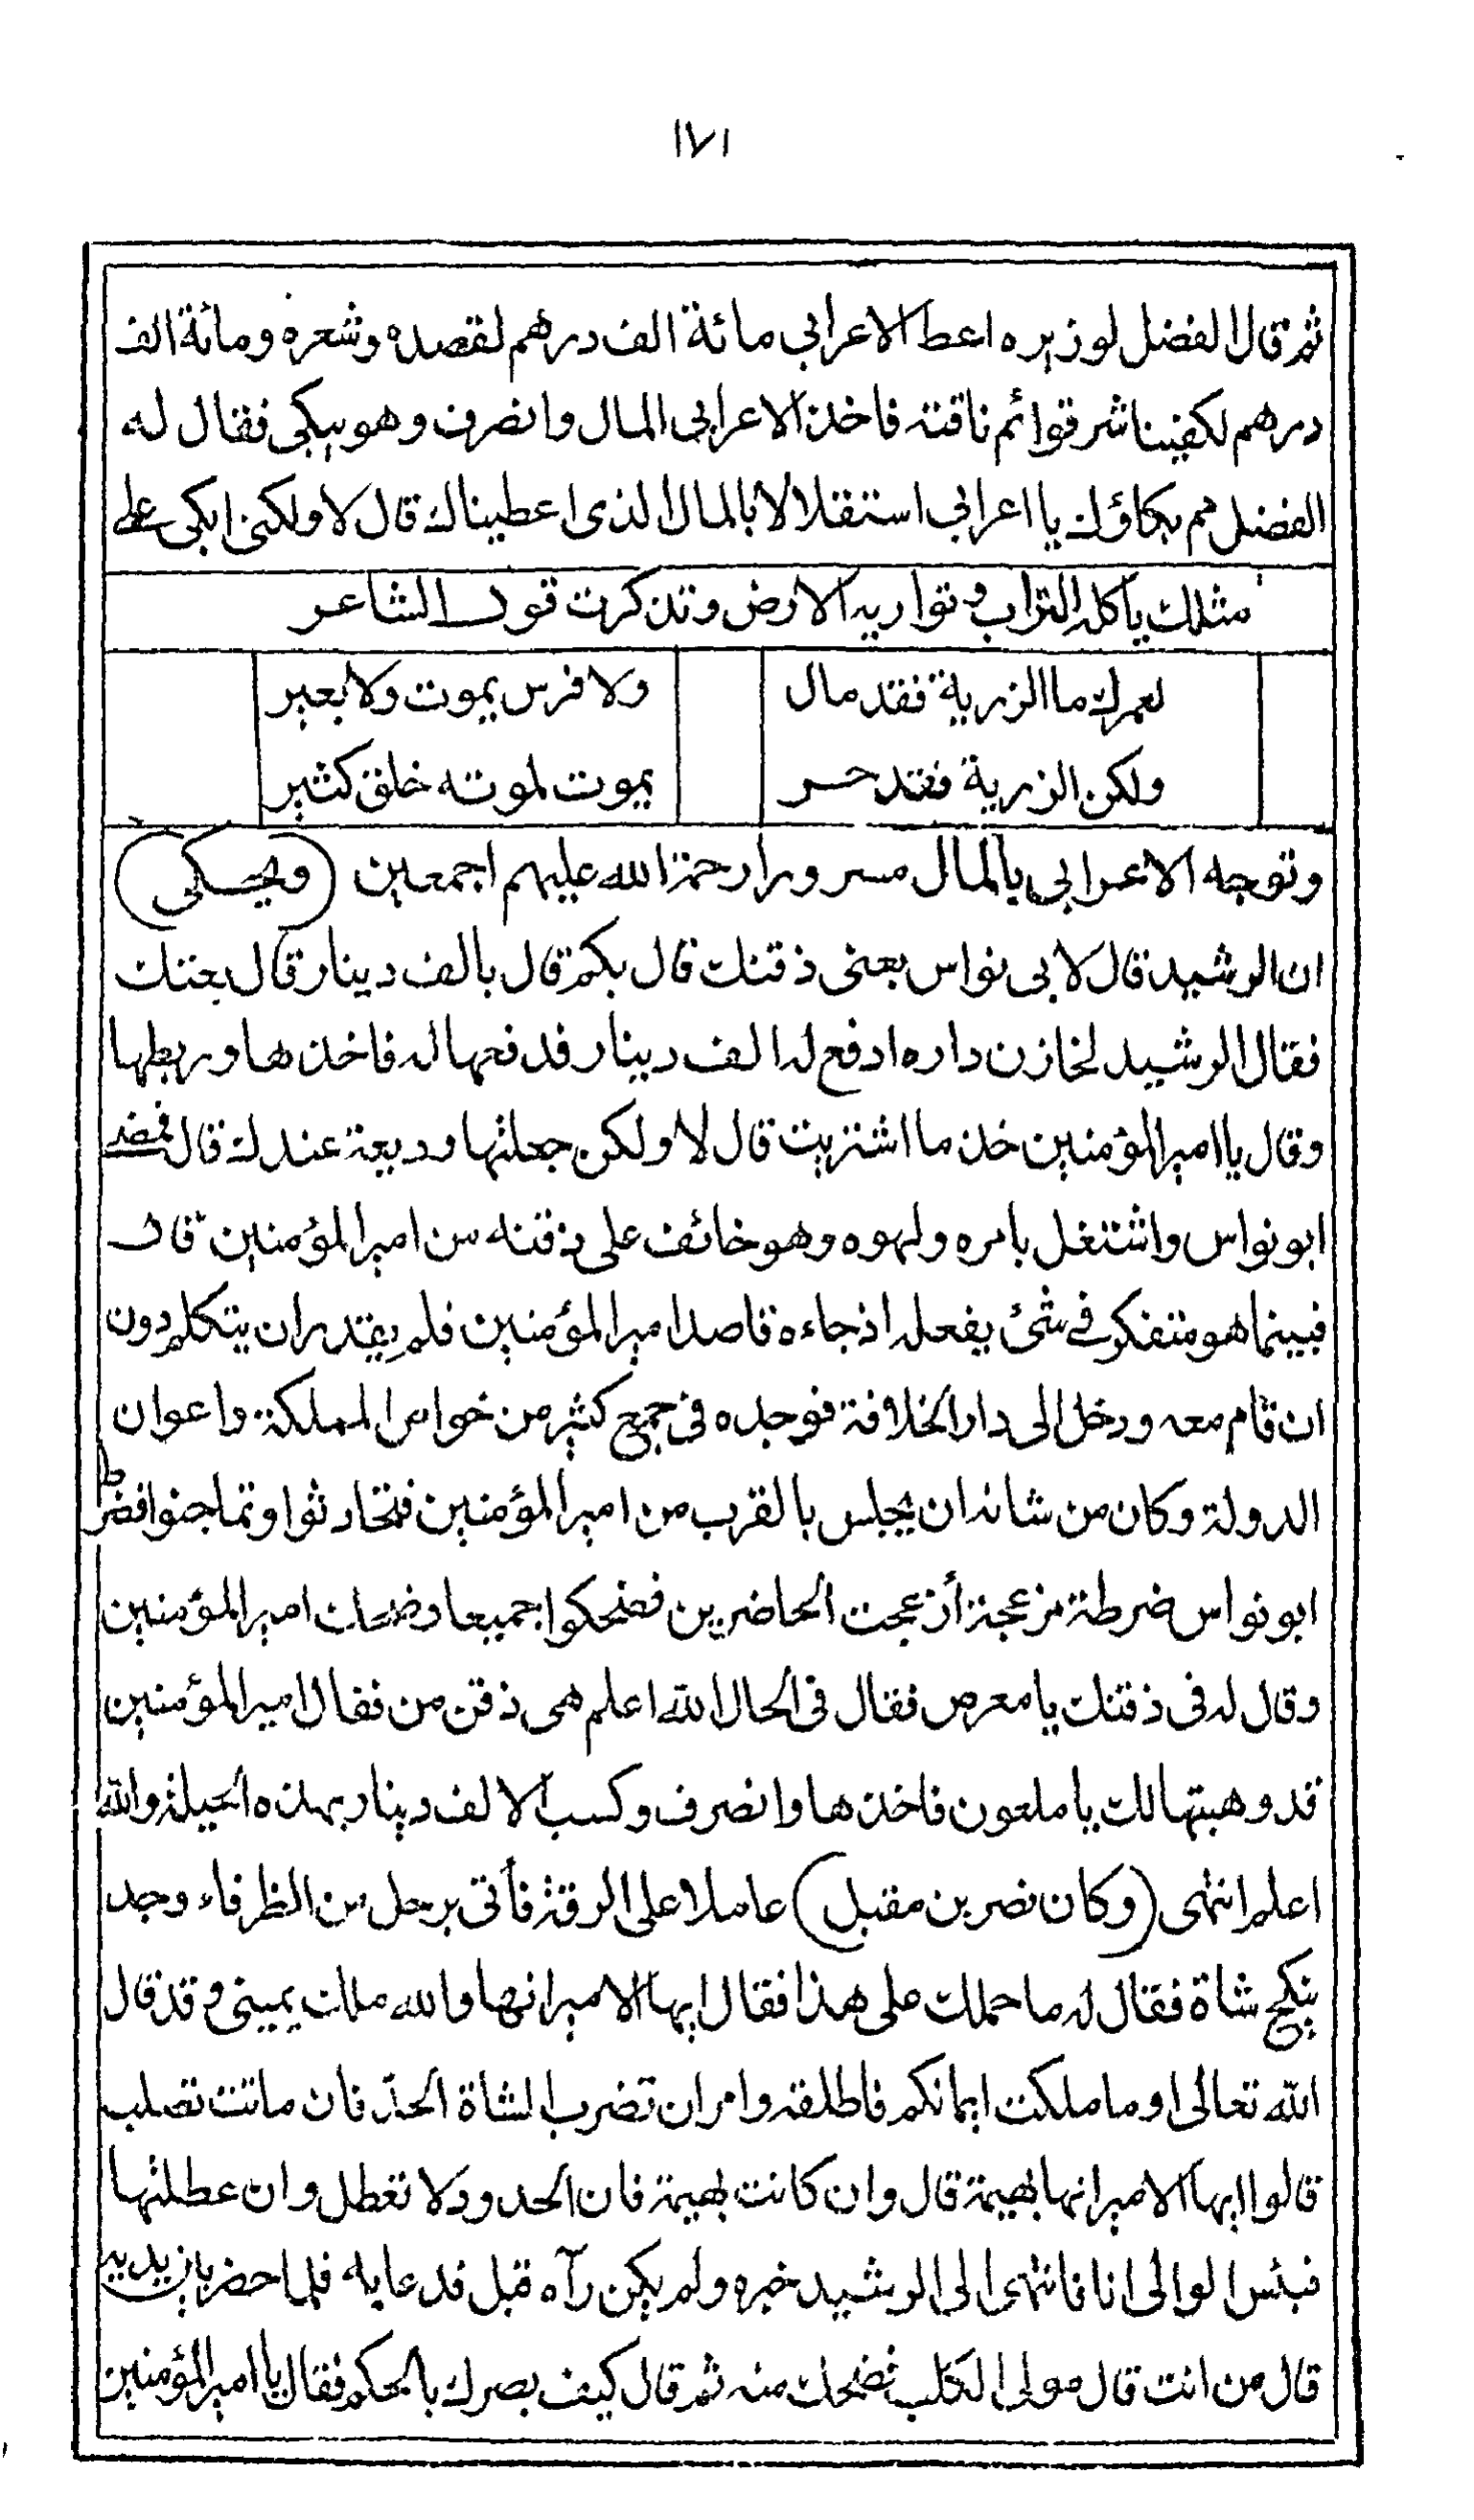 ١٧١
ثم قال الفضل لوزيره اعط الاعرابي مائة الف درهم لقصده وشعره ومائة الف
درهم لكفيناشر قوائم ناقته فاخذ الاعرابي المال وانصرف وهو يبكي فقال له
الفضل مم بكاؤك يا اعرابي استقلالا بالمال الذى اعطيناك قال لا ولكنى ابكى على
مثلك ياكله التراب وتواريه الارض وتذكرت قول الشاعر
لعمرك ما الرزية فقد مال ولا فرس يموت ولا بعير
ولكن الرزية فقد حر يموت لموته خلق كثير
وتوجه الاعرابي بالمال مسرورا رحمة الله عليهم اجمعين (ويحكى)
ان الرشيد قال لابى نواس بعنى ذقنك قال بكم قال بالف دينار قال بعتك
فقال الرشيد لخازن داره ادفع له الف دينار فدفعها له فاخذها وربطها
وقال يا امير المؤمنين خذ ما اشتريت قال لا ولكن جعلتها وديعة عندك قال فمضى
ابو نواس واشتغل بامره ولهوه وهو خائف على ذقنه من امير المؤمنين قال
فبينما هو متفكر فى شئ يفعله اذ جاءه قاصد امير المؤمنين فلم يقدر ان يتكلم دون
ان قام معه ودخل الى دار الخلافة فوجده فى جمع كثير من خواص المملكة واعوان
الدولة وكان من شانه ان يجلس بالقرب من امير المؤمنين فتحادثوا وتماجنوا فضرط
ابو نواس ضرطة مزعجة أزعجت الحاضرين فضحكوا جميعا وضحك امير المؤمنين
وقال له فى ذقنك يا معرص فقال فى الحال الله اعلم هى ذقن من فقال امير المؤمنين
قد وهبتها لك يا ملعون فاخذها وانصرف وكسب الالف دينار بهذه الحيلة والله
اعلم انتهى (وكان نصر بن مقبل) عاملا على الرقة فأتى برجل من الظرفاء وجد
ينكح شاة فقال له ما حملك على هذا فقال ايها الامير انها والله ملك يمينى وقد قال
الله تعالى او ما ملكت ايمانكم فاطلقه وامر ان تضرب الشاة الحدّ فان ماتت تصلب
قالوا ايها الامير انها بهيمة قال وان كانت بهيمة فان الحدود لا تعطل وان عطلتها
فبئس الوالى انا فانتهى الى الرشيد خبره ولم يكن رآه قبل فدعا به فلما حضر بين يديه
قال من انت قال مولى الكلب فضحك منه ثم قال كيف بصرك بالحكم فقال يا امير المؤمنين